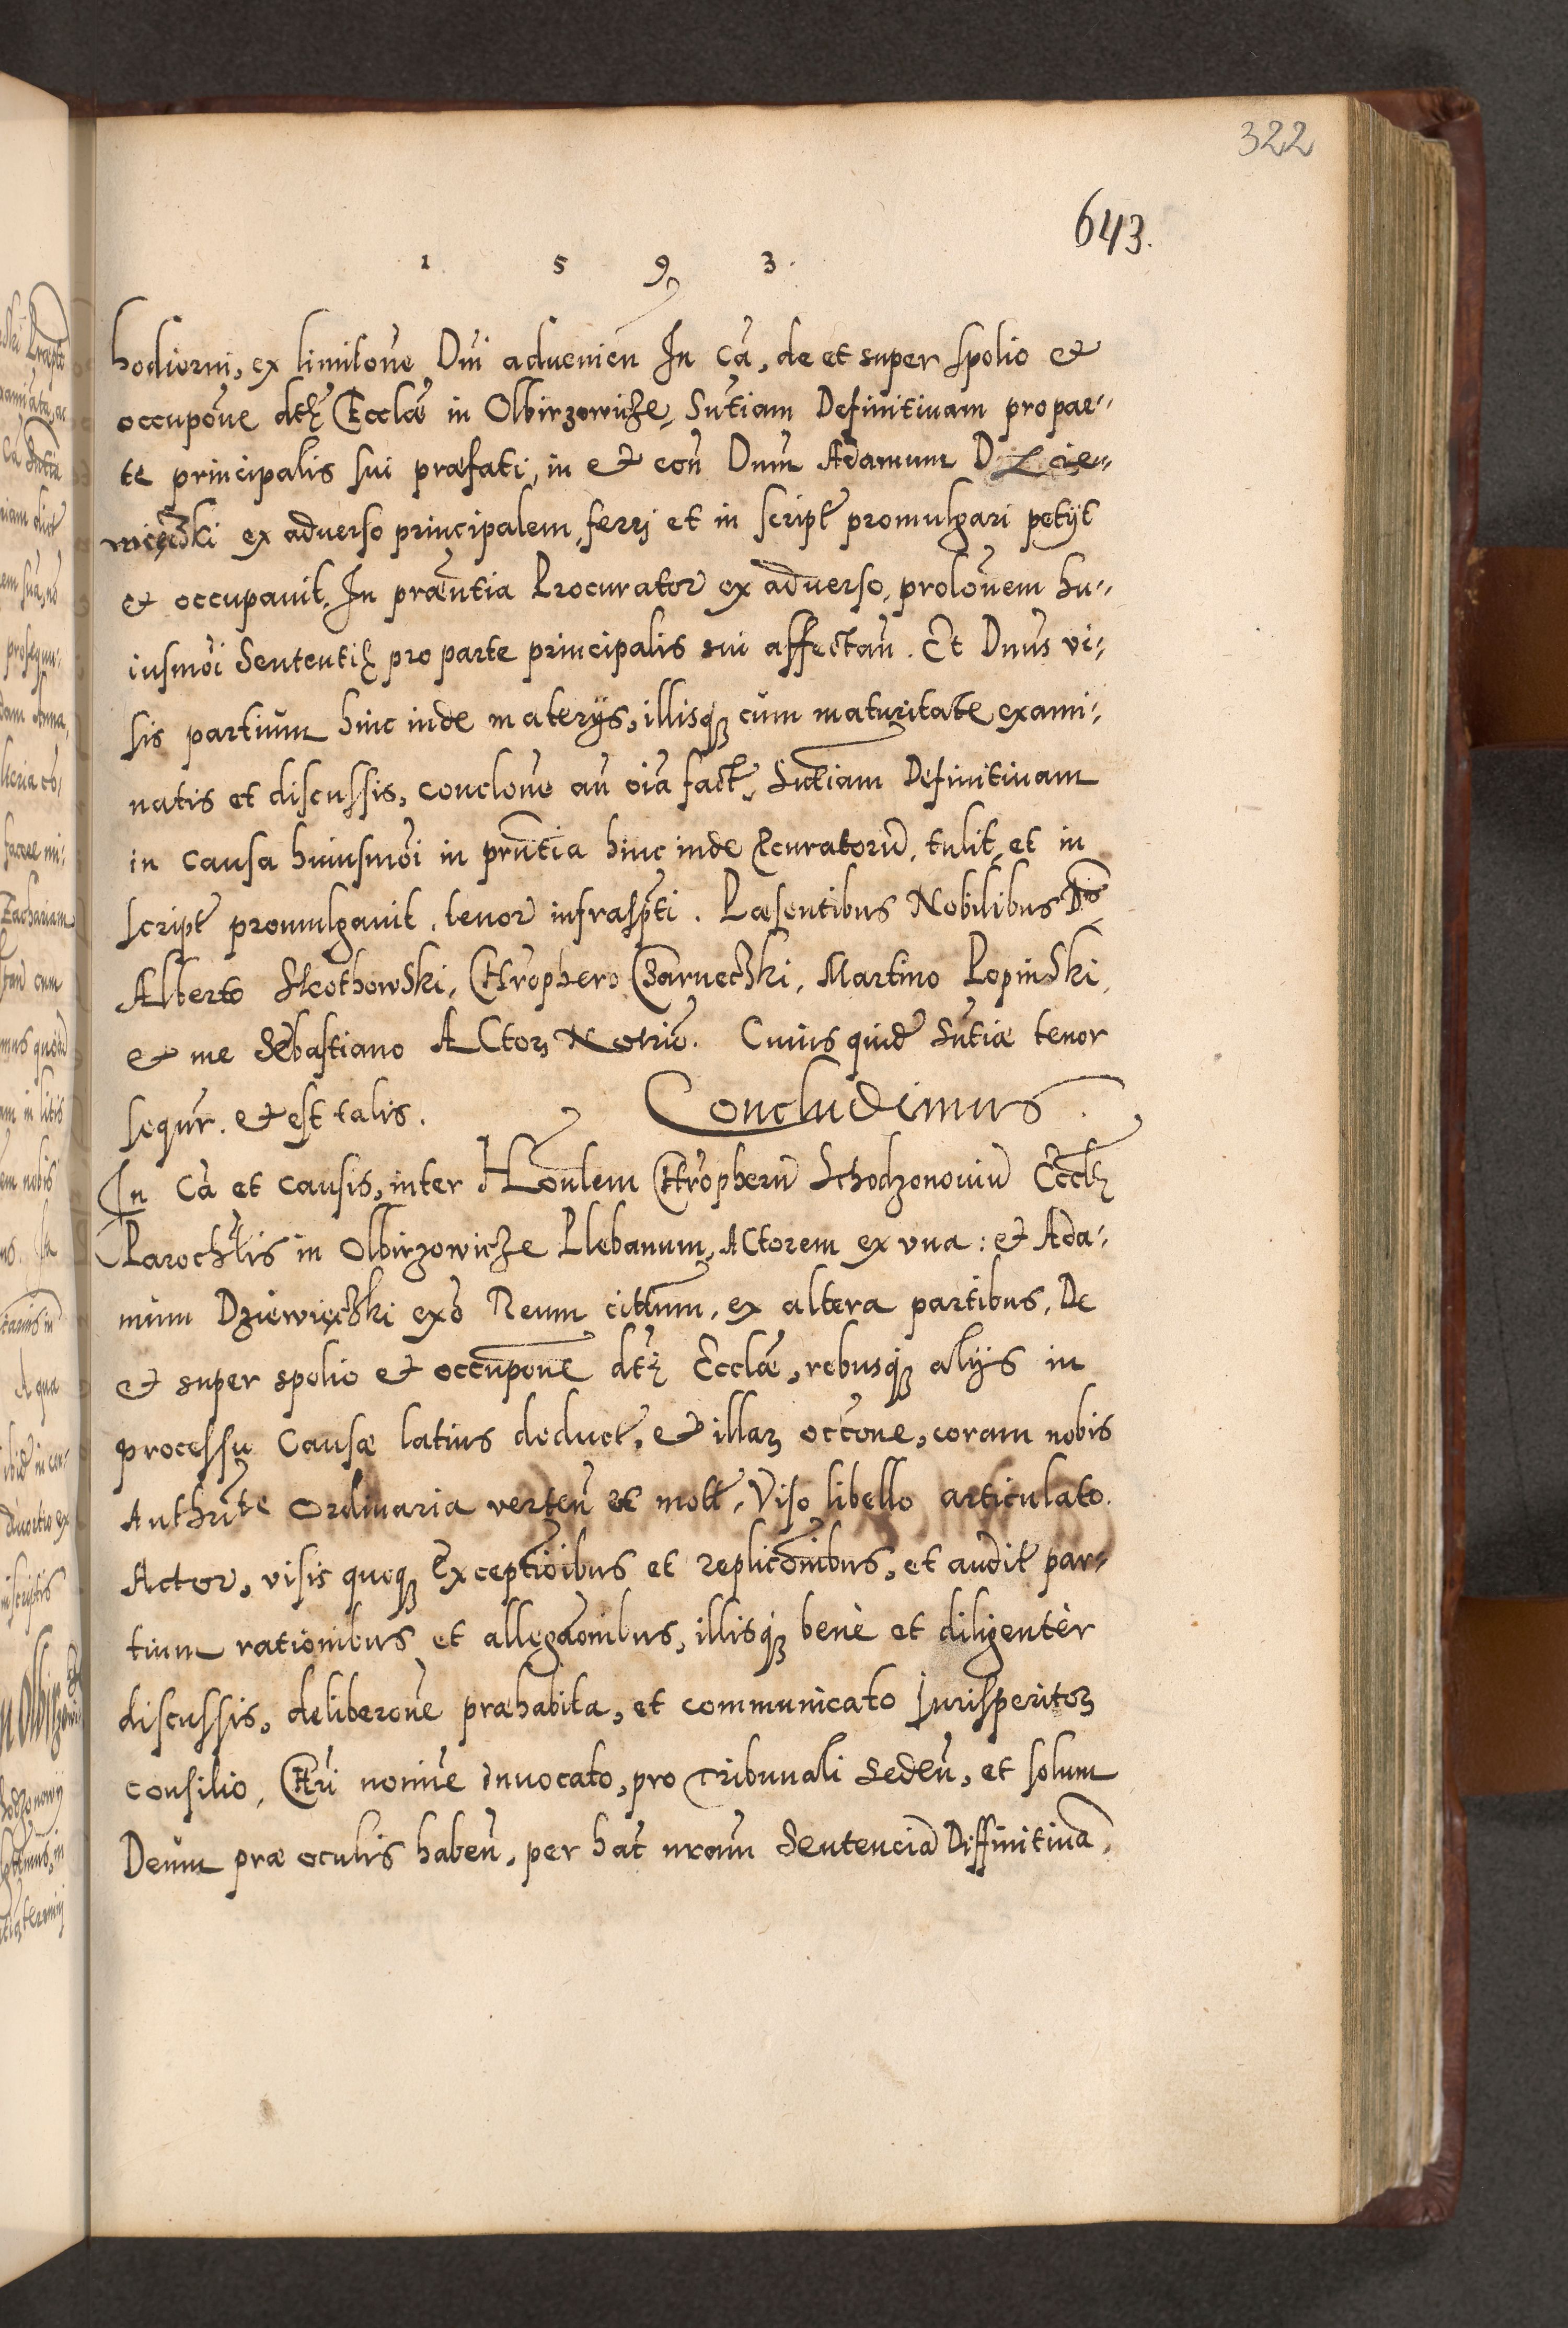 322
643.
1 5 9 3.
hodierni, ex limitōne Dni aduenien̄ In cā, de et super spolio et
occupōne dtę Ecclæ in Olbirzowicze, Sn̄tiam Definitiuam pro par-
te principalis sui præfati, in et con̄ Dnum Adamum Dzie-
więczki ex aduerso principalem, ferrj et in script promulgari petÿt
et occupauit, In præn̄tia Procurator ex aduerso, prolōnem hu-
iusmōi Sententię pro parte principalis sui affectan̄. Et Dnus vi-
sis partium hinc inde materijs, illisq3 cum maturitate exami-
natis et discussis, conclōne an̄ oīa fact, Sn̄tiam Definitiuam
in causa huiusmōi in prn̄tia hinc inde Pcuratorū, tulit et in
script promulgauit, tenor infraspti. Præsentibus Nobilibus Dnis
Alberto Skothowski, Chrophero Czarneczki, Martino Lopinski,
et me Sebastiano Actor3 Notrio. Cuius quid Sn̄tiæ tenor
sequr. et est talis. Concludimus.
In Cā et causis, inter Honlem Chropherū Schodzonouiū Eccłę
Parochłis in Olbirzowicze Plebanum, Actorem ex vna: et Ada-
mum Dziewięczki exō Reum cittum, ex altera partibus, De
et super spolio et occupōne dtę Ecclæ, rebusq3 alÿs in
processu Causæ latius deduct, et illa3 occōne, coram nobis
Authrīte Ordinaria verten̄ et mott, Viso libello articulato
Actor, visis quoq3 Exceptiōibus et replicōnibus, et audit par-
tium rationibus et allegaōnibus, illisq3 benè et diligentèr
discussis, deliberōne præhabita, et communicato Jurisperito3
consilio, Chri nomīne inuocato, pro Tribunali seden̄, et solum
Deum præ oculis haben̄, per hāc nrām Sentenciā Diffinitiuā,